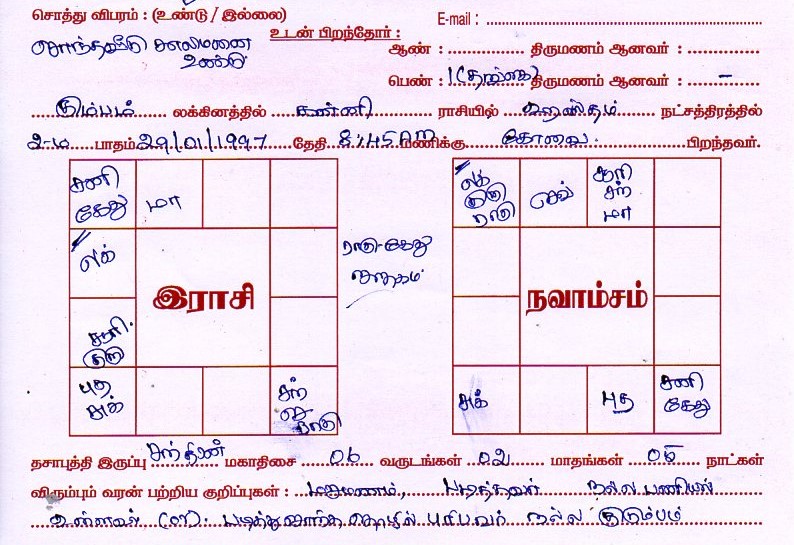 சொத்து விபரம் : (உண்டு / இல்லை)
E-mail :
சொந்தவீடு காலிமனை
உண்டு
உடன் பிறந்தோர் :
ஆண் : திருமணம் ஆனவர் :
பெண் : 1 (தங்கை) திருமணம் ஆனவர் : –
கும்பம் லக்கினத்தில் கன்னி ராசியில் ஹஸ்தம் நட்சத்திரத்தில்
2-ம் பாதம் 29/01/1997 தேதி 8:45 AM மணிக்கு கோவை. பிறந்தவர்.
சனி
கேது
மா
லக்
சூரி.
குரு
புத
சுக்
சந்
செ
ராகு
இராசி
ராகு-கேது
ஜாதகம்
லக்
குரு
ராகு
செவ்
சூரி
சந்
மா
நவாம்சம்
சுக்
புத
சனி
கேது
தசாபுத்தி இருப்பு சந்திரன் மகாதிசை 06 வருடங்கள் 02 மாதங்கள் 06 நாட்கள்
விரும்பும் வரன் பற்றிய குறிப்புகள் : மறுமணம், படித்தவர் நல்ல பணியில்
உள்ளவர் (or) படித்து சொந்த தொழில் புரிபவர் நல்ல குடும்பம்